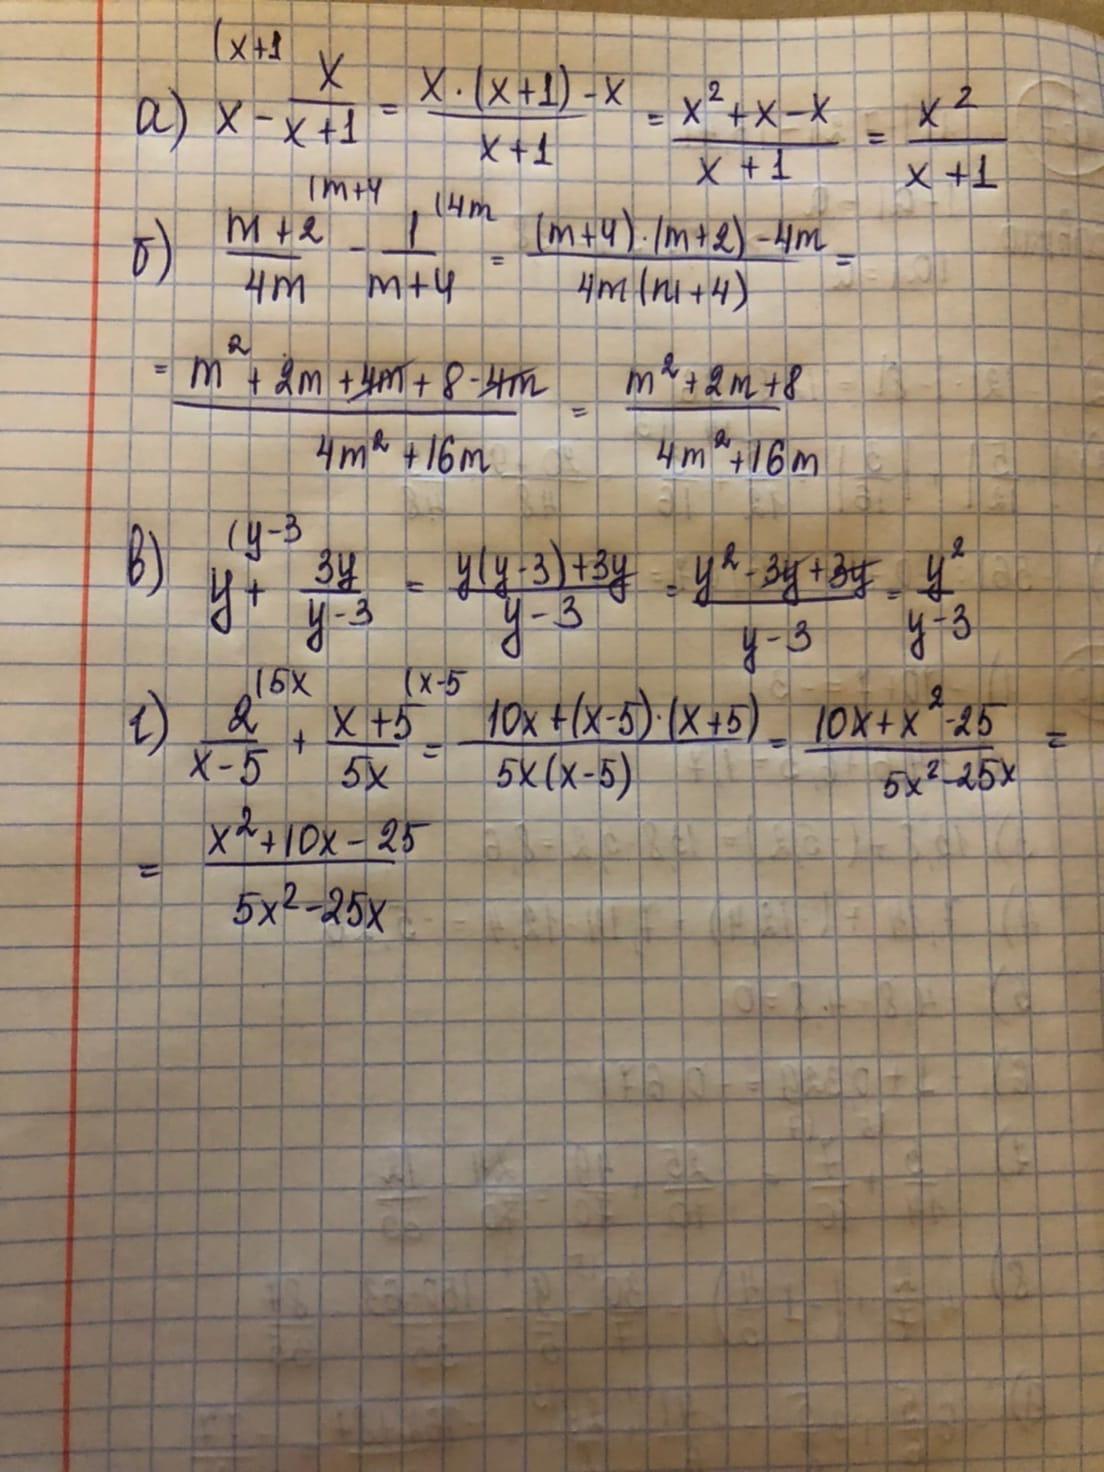 а) x^(x+1 - x/(x+1) = (x·(x+1)-x)/(x+1) = (x²+x-x)/(x+1) = x²/(x+1)
б) (m+2)/(4m)^(m+4 - 1/(m+4)^(4m = ((m+4)·(m+2)-4m)/(4m(m+4)) =
= (m²+2m+4m+8-4m)/(4m²+16m) = (m²+2m+8)/(4m²+16m)
в) y^(y-3 + 3y/(y-3) = (y(y-3)+3y)/(y-3) = (y²-3y+3y)/(y-3) = y²/(y-3)
г) 2/(x-5)^(5x + (x+5)/(5x)^(x-5 = (10x+(x-5)·(x+5))/(5x(x-5)) = (10x+x²-25)/(5x²-25x) =
= (x²+10x-25)/(5x²-25x)